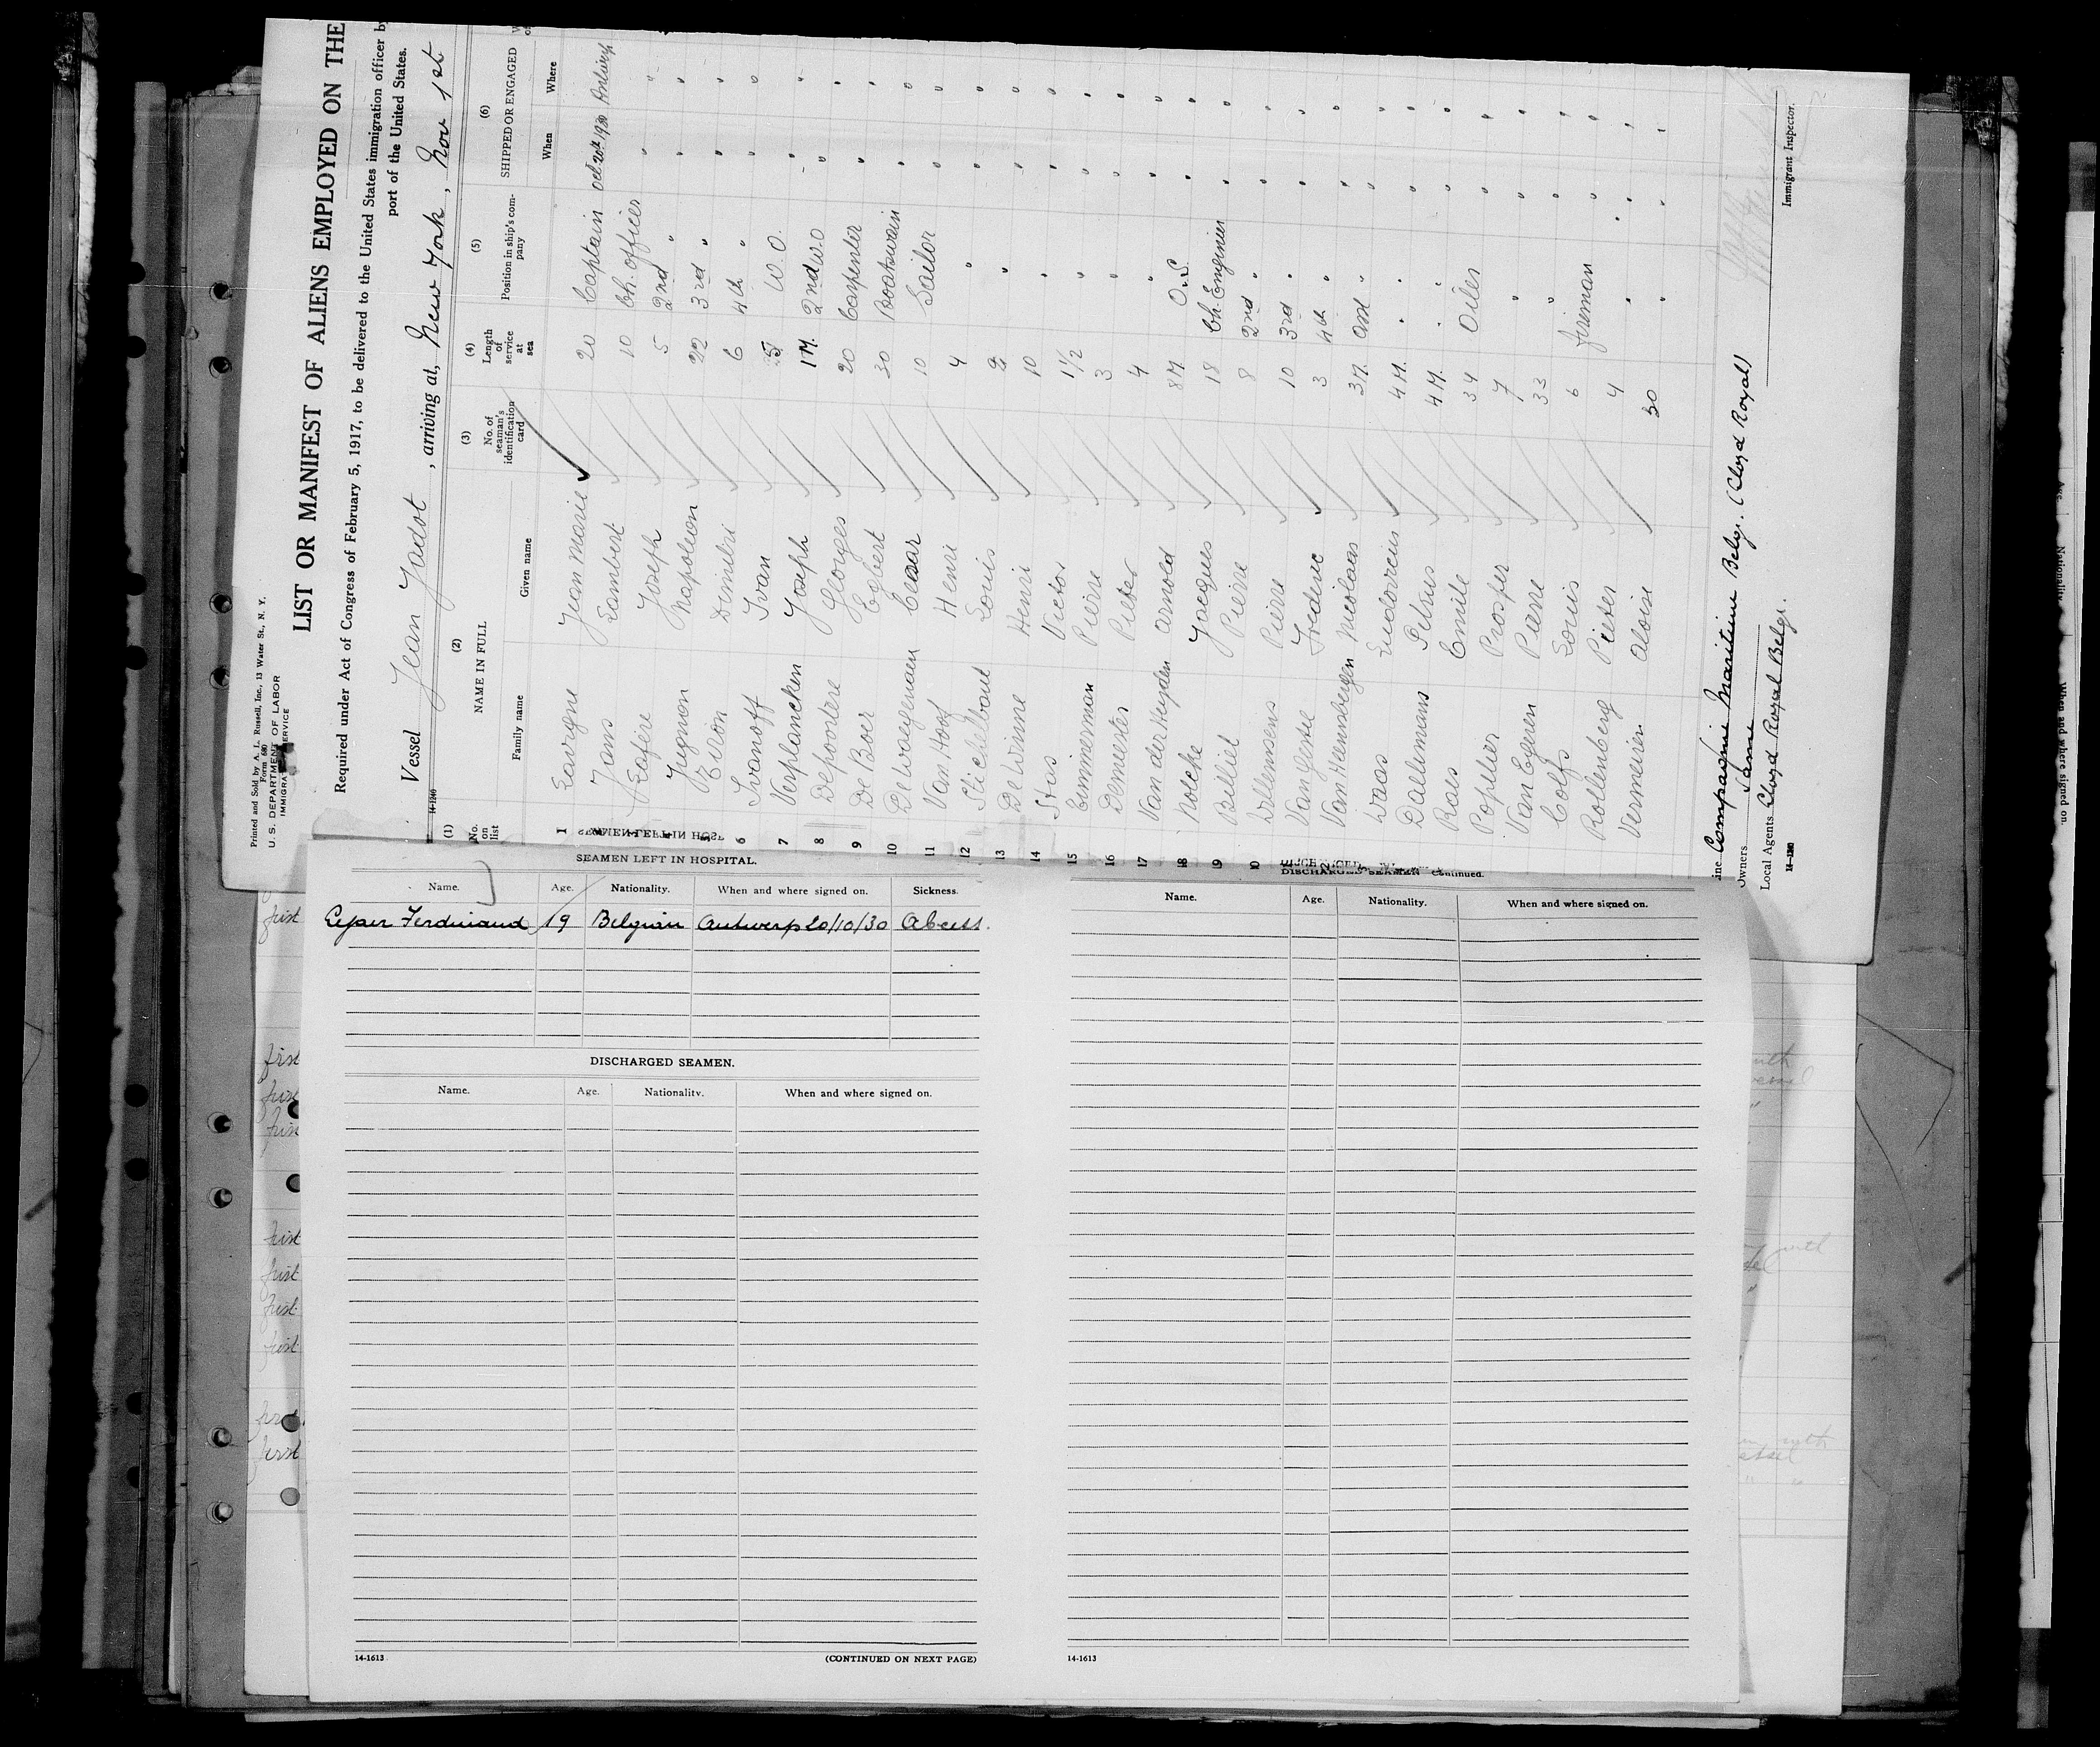 Printed and Sold by A. L. Russell, Inc., 13 Water St., N. Y.
Form 680
U. S. DEPARTMENT OF LABOR
IMMIGRATION SERVICE
LIST OR MANIFEST OF ALIENS EMPLOYED ON THE
Required under Act of Congress of February 5, 1917, to be delivered to the United States immigration officer by
port of the United States.
Vessel Jean Jadot, arriving at, New York, Nov 1st
14-1240
(1) (2) (3) (4) (5) (6)
No. on list NAME IN FULL No. of seaman's identification card Length of service at sea Position in ship's company SHIPPED OR ENGAGED
Family name Given name When Where
1 Lavigne Jean Marie 20 Captain Oct 20th 1930 Antwerp
2 Jans Lambert 10 Ch. officer " "
3 Lafère Joseph 5 2nd " " "
4 Jugnon Napoleon 22 3rd " " "
5 Dimitri 6 4th " " "
6 Ivanoff Ivan W. O. " "
7 Verplancken Joseph 1 M. 2nd W.O " "
8 Depootere Georges 20 Carpenter " "
9 De Boer Egbert 30 Boatswain " "
10 De Waegenaen Cesar 10 Sailor " "
11 Van Hoof Henri 4 " " "
12 Stichelbaut Louis 2 " " "
13 De Winne Henri 10 " " "
14 Stas Victor 1 1/2 " " "
15 Timmerman Pierre 3 " " "
16 Demeester Pieter 4 " " "
17 Van der Heyden Arnold 8 M. O. S. " "
18 Nolcke Jacques 18 Ch. Engineer " "
19 Billiet Pierre 8 2nd " " "
Willemsens Pierre 10 3rd " " "
Van Gestel Frederic 3 4th " " "
Van Hensbergen Nicolaas 3 M. asst " " "
Waas Ludovicus 4 M. " " " "
Dallemans Petrus 4 M. " " " "
Raes Emile 34 Oiler " "
Poplier Prosper 7 " " "
Van Egeren Pierre 33 " " "
Colfs Louis 6 fireman " "
Rollenberg Pieter 4 " " "
Vermeiren Aloïs 30 " " "
Line Compagnie Maritime Belge. (Lloyd Royal)
Owners Same
Local Agents Lloyd Royal Belge.
14-1240
Immigrant Inspector.
SEAMEN LEFT IN HOSPITAL.
Name. Age. Nationality. When and where signed on. Sickness.
Ferdinand 19 Belgian Antwerp 20/10/30 Abcess.
DISCHARGED SEAMEN.
Name. Age. Nationality. When and where signed on.
14-1613 (CONTINUED ON NEXT PAGE)
DISCHARGED SEAMEN Continued.
Name. Age. Nationality. When and where signed on.
14-1613
first
first
first
first
first
first
first
first
first